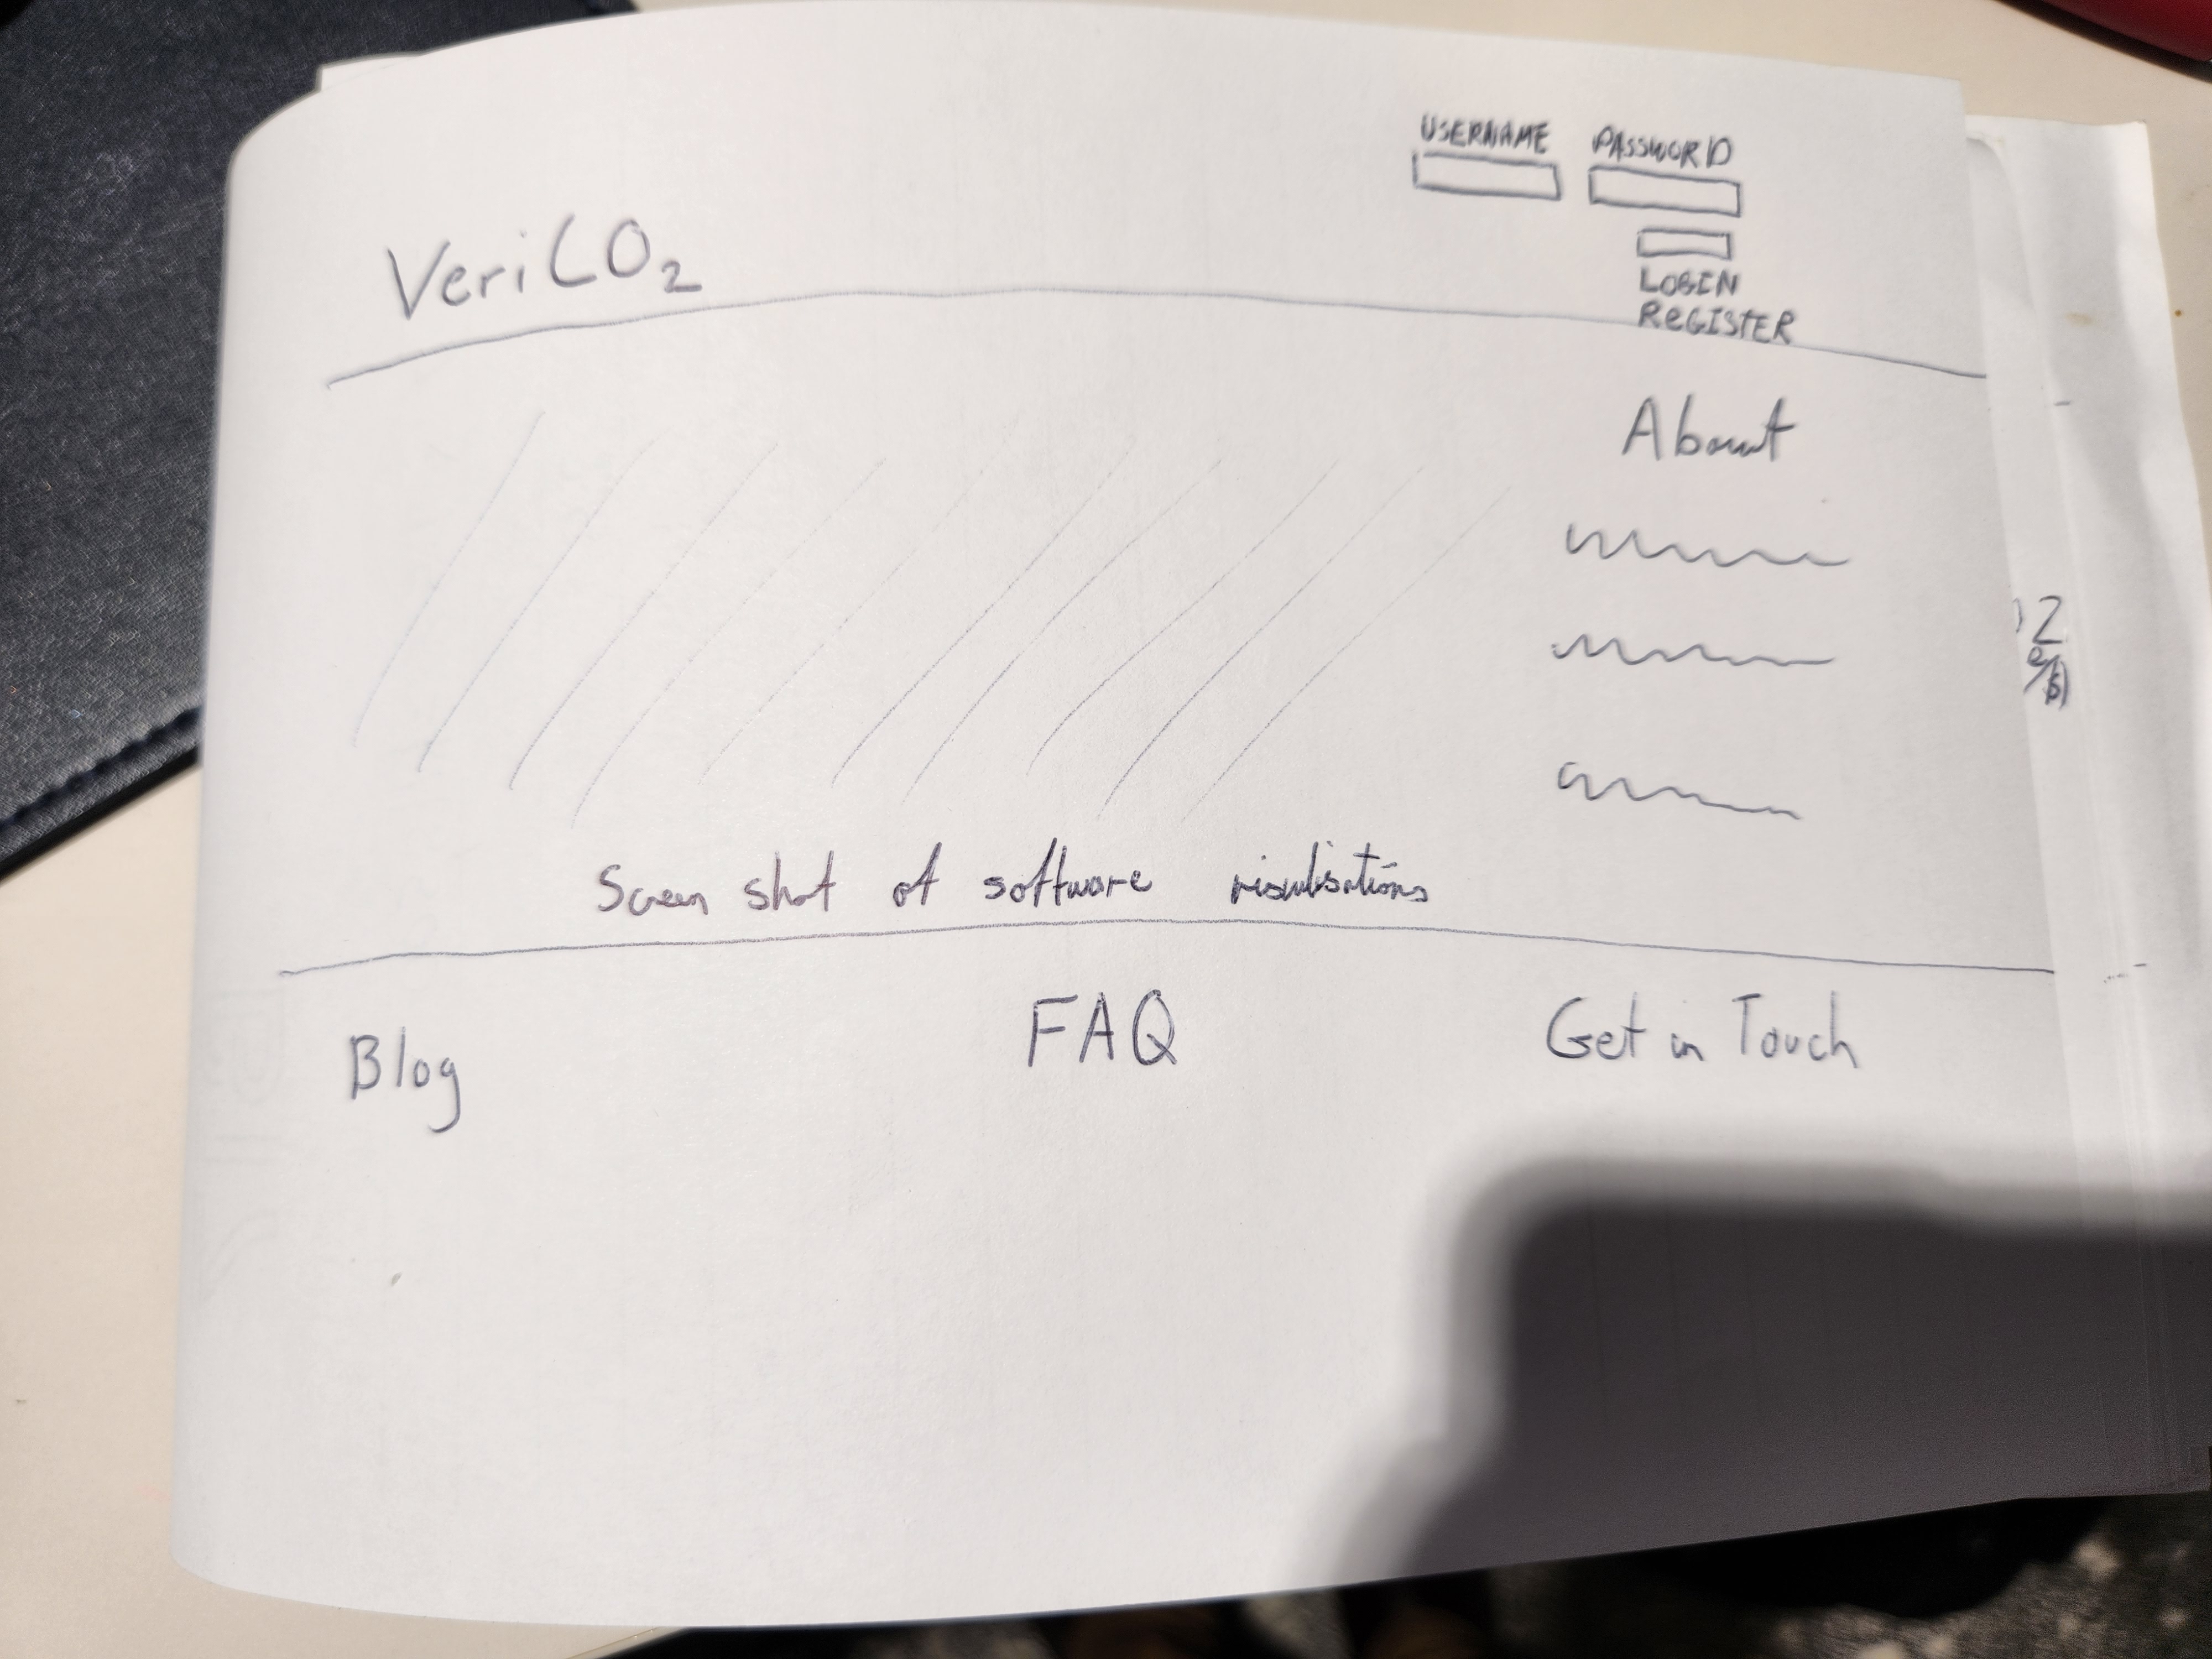 USERNAME PASSWORD
VeriCO₂
LOGIN
REGISTER
About
Screen shot of software visulisations
Blog
FAQ
Get in Touch